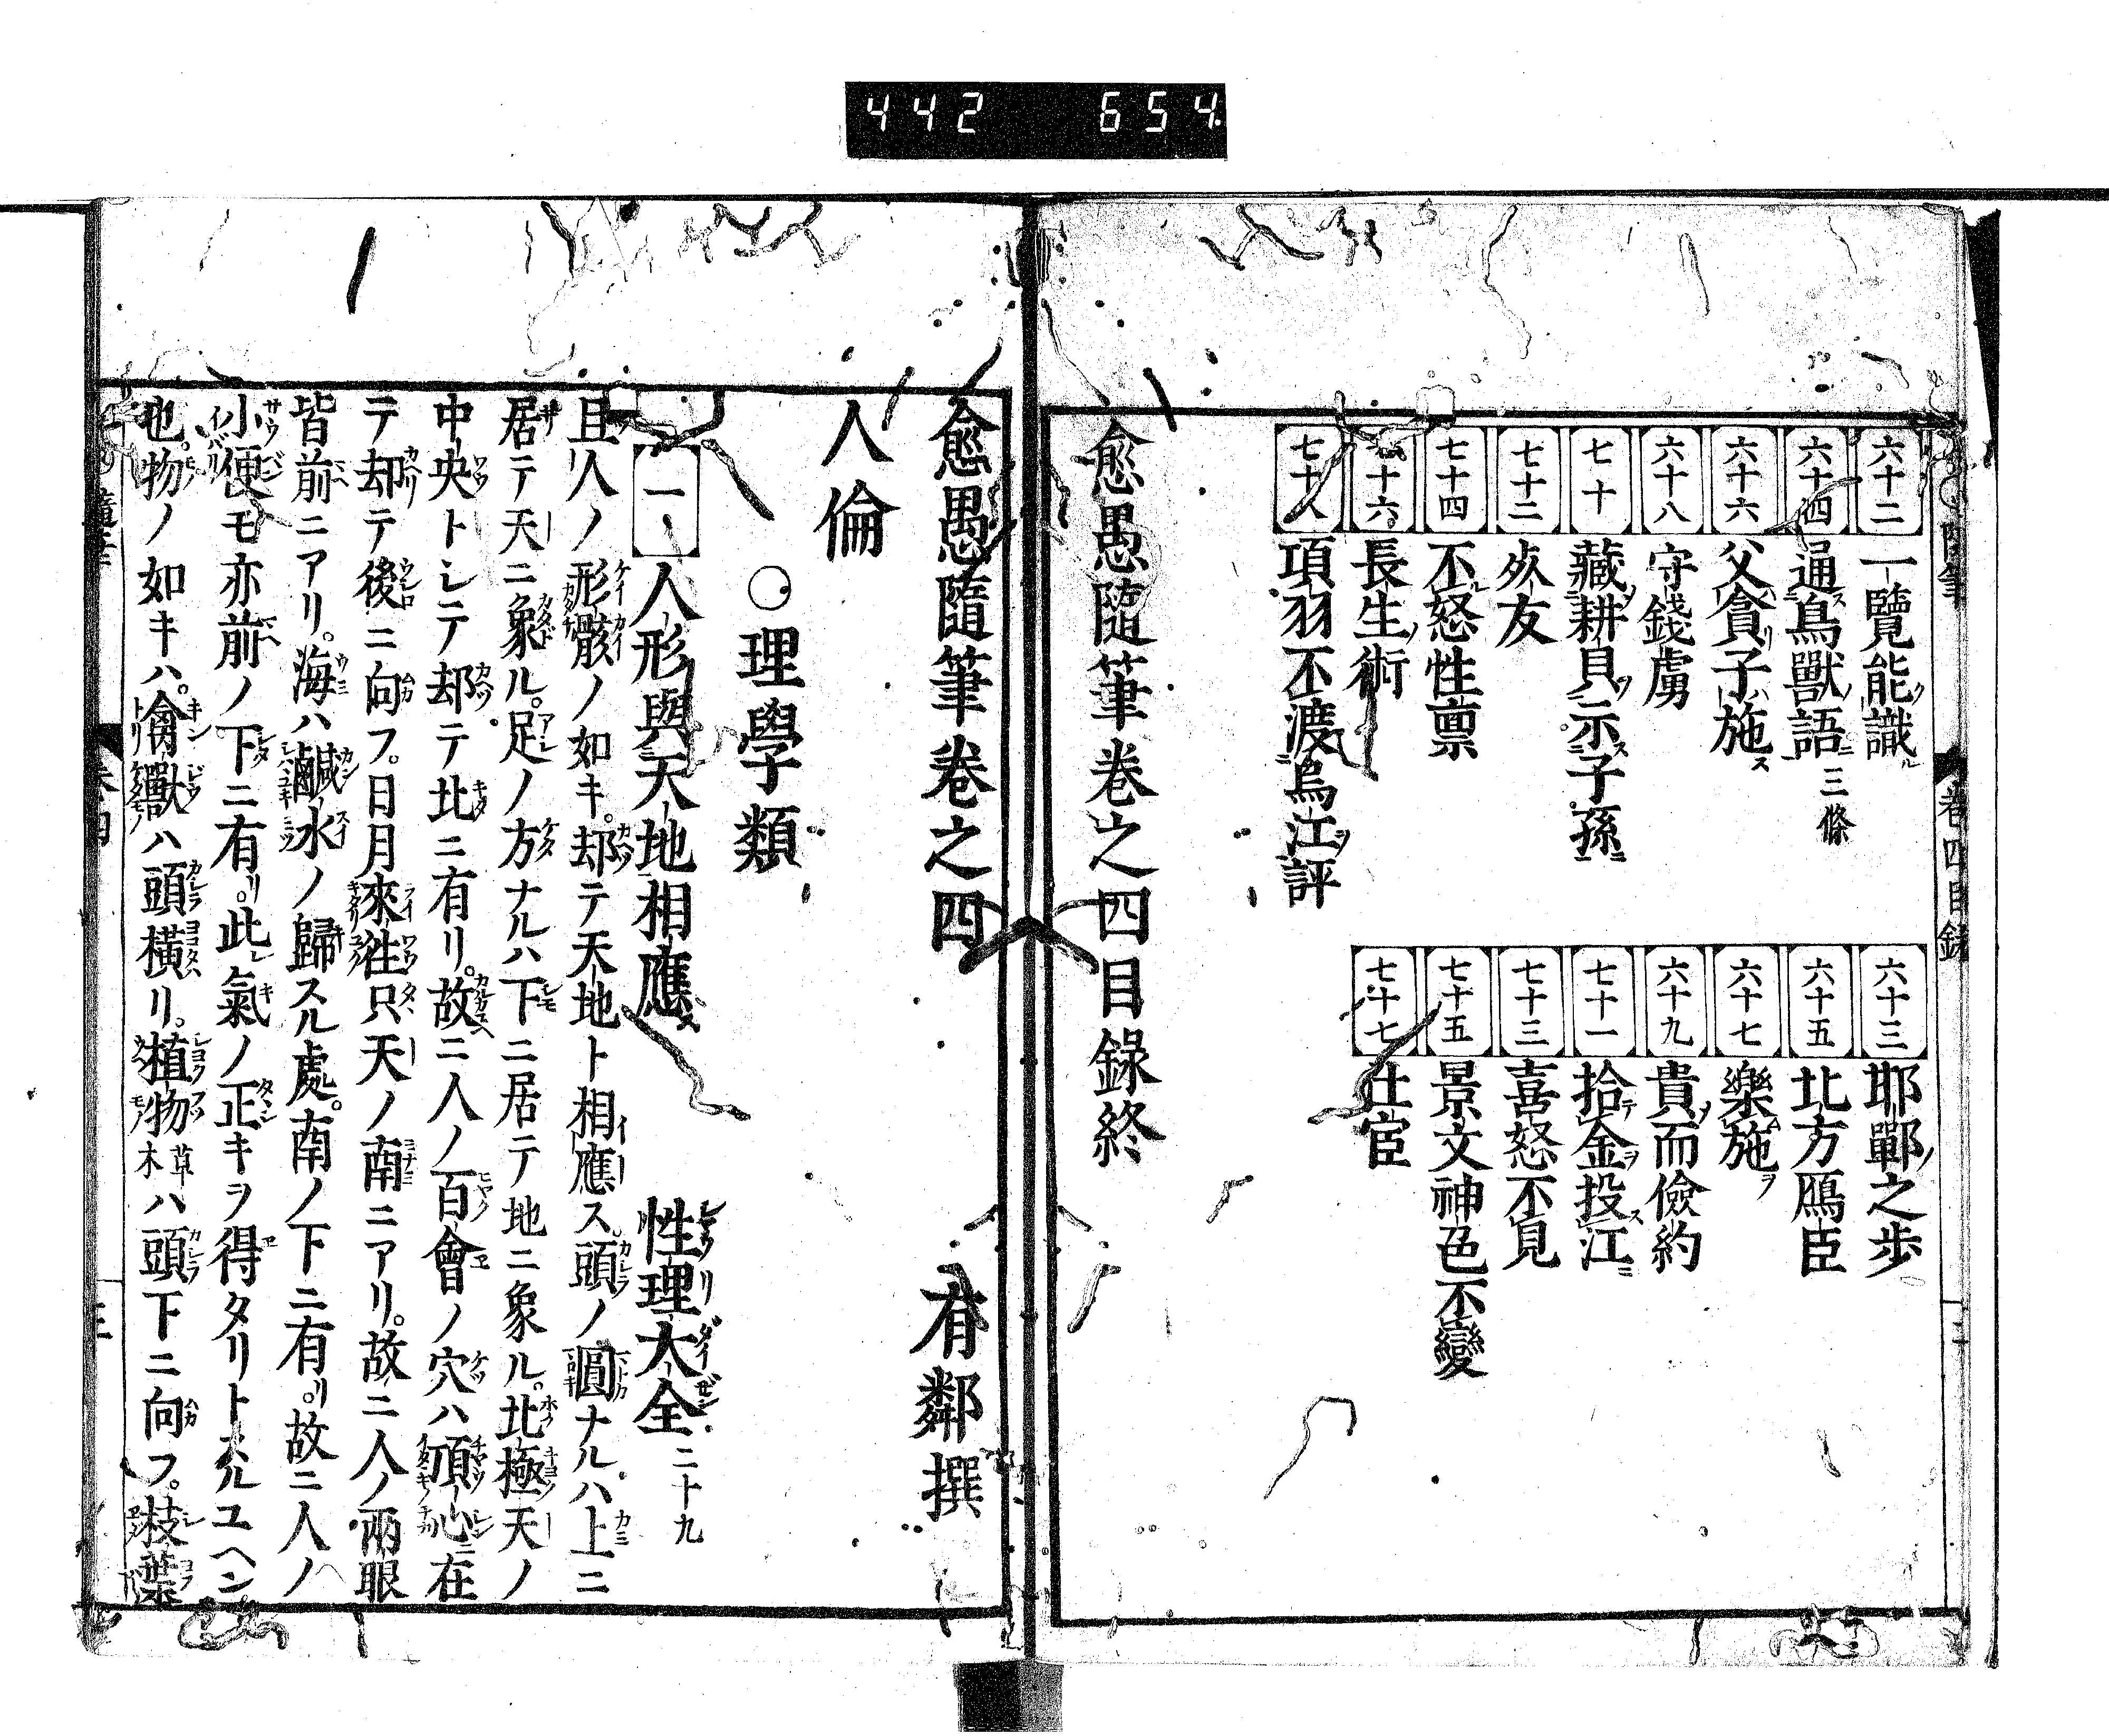 442 654
六十二 一覽能識
六十三 耶鄲之歩
六十四 通鳥獸語 三條
六十五 北方鴈臣
六十六 父貪子施
六十七 樂施
六十八 守錢虜
六十九 貴而儉約
七十 藏耕貝示子孫
七十一 拾金投江
七十二 烖友
七十三 喜怒不見
七十四 不怒性禀
七十五 景文神色不變
七十六 長生術
七十七 仕宦
七十八 項羽不渡烏江評
愈愚隨筆卷之四目録終
愈愚隨筆卷之四 有鄰撰
人倫
○理學類
一 人形與天地相應 性理大全 二十九
且人ノ形骸ノ如キ却テ天地ト相應ス頭ノ圓ナルハ上ニ
居テ天ニ象ル足ノ方ナルハ下ニ居テ地ニ象ル北極天ノ
中央トシテ却テ北ニ有リ故ニ人ノ百會ノ穴ハ頂心在
テ却テ後ニ向フ日月來往只天ノ南ニアリ故ニ人ノ兩眼
皆前ニアリ海ハ鹹水ノ歸スル處南ノ下ニ有リ故ニ人ノ
小便モ亦前ノ下ニ有リ此氣ノ正キヲ得タリトスルユヘン
也物ノ如キハ禽獸ハ頭橫リ植物草木ハ頭下ニ向フ枝葉